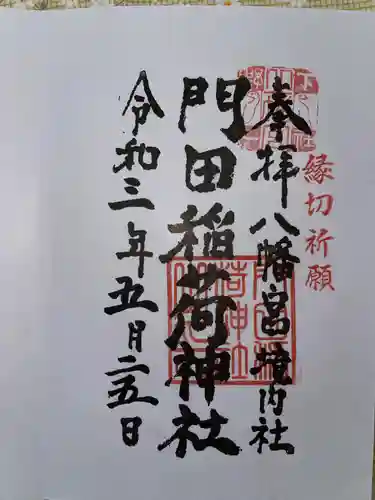 縁切祈願
奉拝 八幡宮境内社
門田稲荷神社
令和三年五月二五日